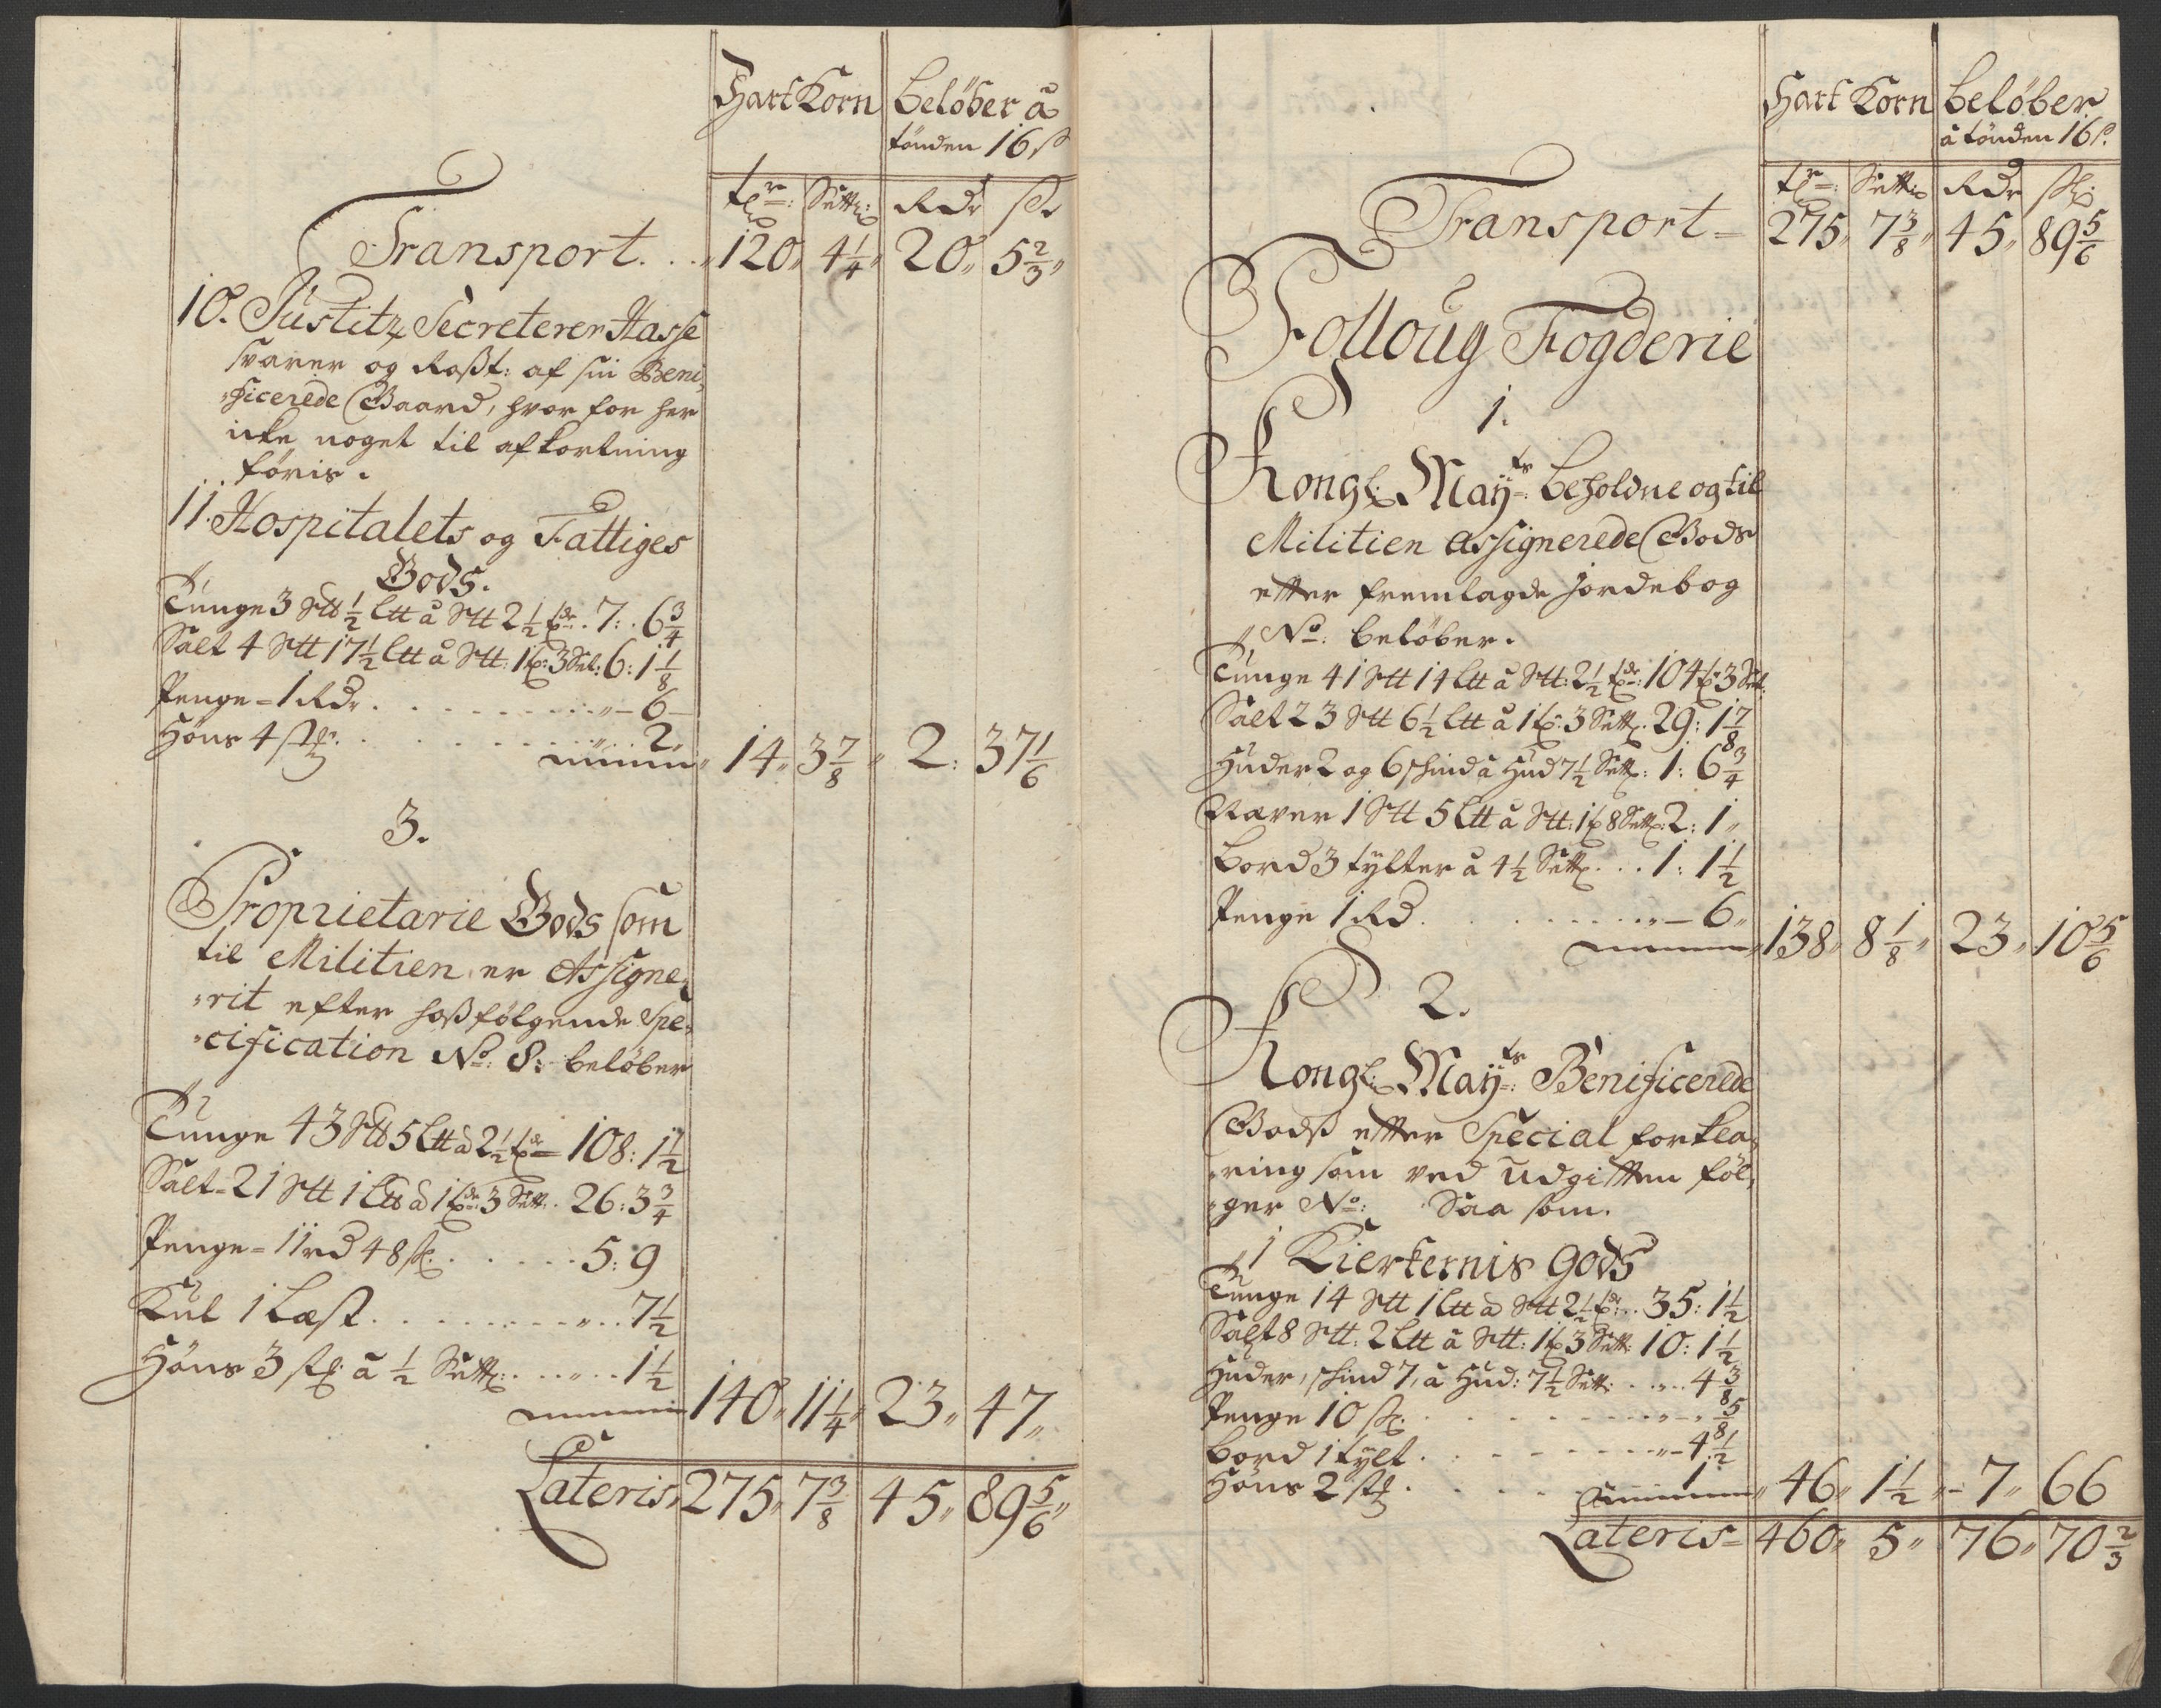 HartKorn beløber å
tønden 16 ß
tr: Sett: Rdr ß
Transport. . . 120 4 1/4 20 5 2/3
10. Justitz Secreterer Hasse
svarer og Roßt: af sin Beni,,
,,ficerede Gaard, hvor for her
icke noget til afkortning
føris.
11. Hospitalets og Fattiges
Gods.
Tunge 3 Stt 1/2 Ltt å Stt 2 1/2 tdr. 7: 6 3/4
Salt 4 Stt 17 1/2 Ltt å Stt: 1 t: 3 Set: 6: 1 1/8
Penge = 1 Rdr. . . . . . . . . ,, – 6 –
Høns 4 stk. . . . . . . . . ,, . . 2 ,,
14 3 7/8 2: 37 1/6
3.
Proprietarie Gods som
til Militien er Assigne,,
,,rit efter hoßfølgende Spe,,
,,cification No: 8: beløber
Tunge 43 Stt 5 Ltt å 2 1/2 td = 108: 1 1/2
Salt = 21 Stt 1 Ltt å 1 td: 3 Sett: 26: 3 3/4
Penge = 11 rd 48 ß. . . . . . 5: 9
Kul 1 Læst . . . . . . . . ,, . . 7 1/2
Høns 3 stk å 1/2 Sett: . . ,, . . 1 1/2
140 11 1/4 23 47
Lateris 275 7 3/8 45 89 5/6
Hart Korn beløber
å tønden 16 ß.
tr: Sett: Rdr ß:
Transport = 275 7 3/8 45 89 5/6
Folloug Fogderie
1.
Kongl: May:ts beholdne og til
Militien assignerede Gods
etter fremlagde Jordebog
No: beløber.
Tunge 41 Stt 14 Ltt å Stt: 2 1/2 tdr: 104 t: 3 Sett:
Salt 23 Stt 6 1/2 Ltt å 1 t: 3 Sett: 29: 1 7/8
Huder 2 og 6 skind å Hud 7 1/2 Sett: 1: 6 3/4
Næver 1 Stt 5 Ltt å Stt: 1 t 8 Sett: 2: 1 ,,
Bord 3 tylter å 4 1/2 Sett. . . 1: 1 1/2
Penge 1 Rd. . . . . . . . . ,, – 6 ,,
138 8 1/8 23 10 5/6
2.
Kongl: May:ts Benificerede
Godß etter Special forkla,,
,,ring som ved Udgitten føl,,
,,ger No: Saa som.
1 Kierkernis gods
Tunge 14 Stt 1 Ltt å Stt 2 1/2 tdr: . . 35: 1 1/2
Salt 8 Stt: 2 Ltt å Stt: 1 t 3 Sett: 10: 1 1/2
Huder, skind 7, å Hud: 7 1/2 Sett: . . ,, . . 4 3/8
Penge 10 ß. . . . . . . . . ,, – ,, 5/8
Bord 1 tylt . . . . . . . . ,, – 4 1/2
Høns 2 stk . . . . . 1 ,,
46 1 1/2 7 66
Lateris = 460 5 76 70 2/3